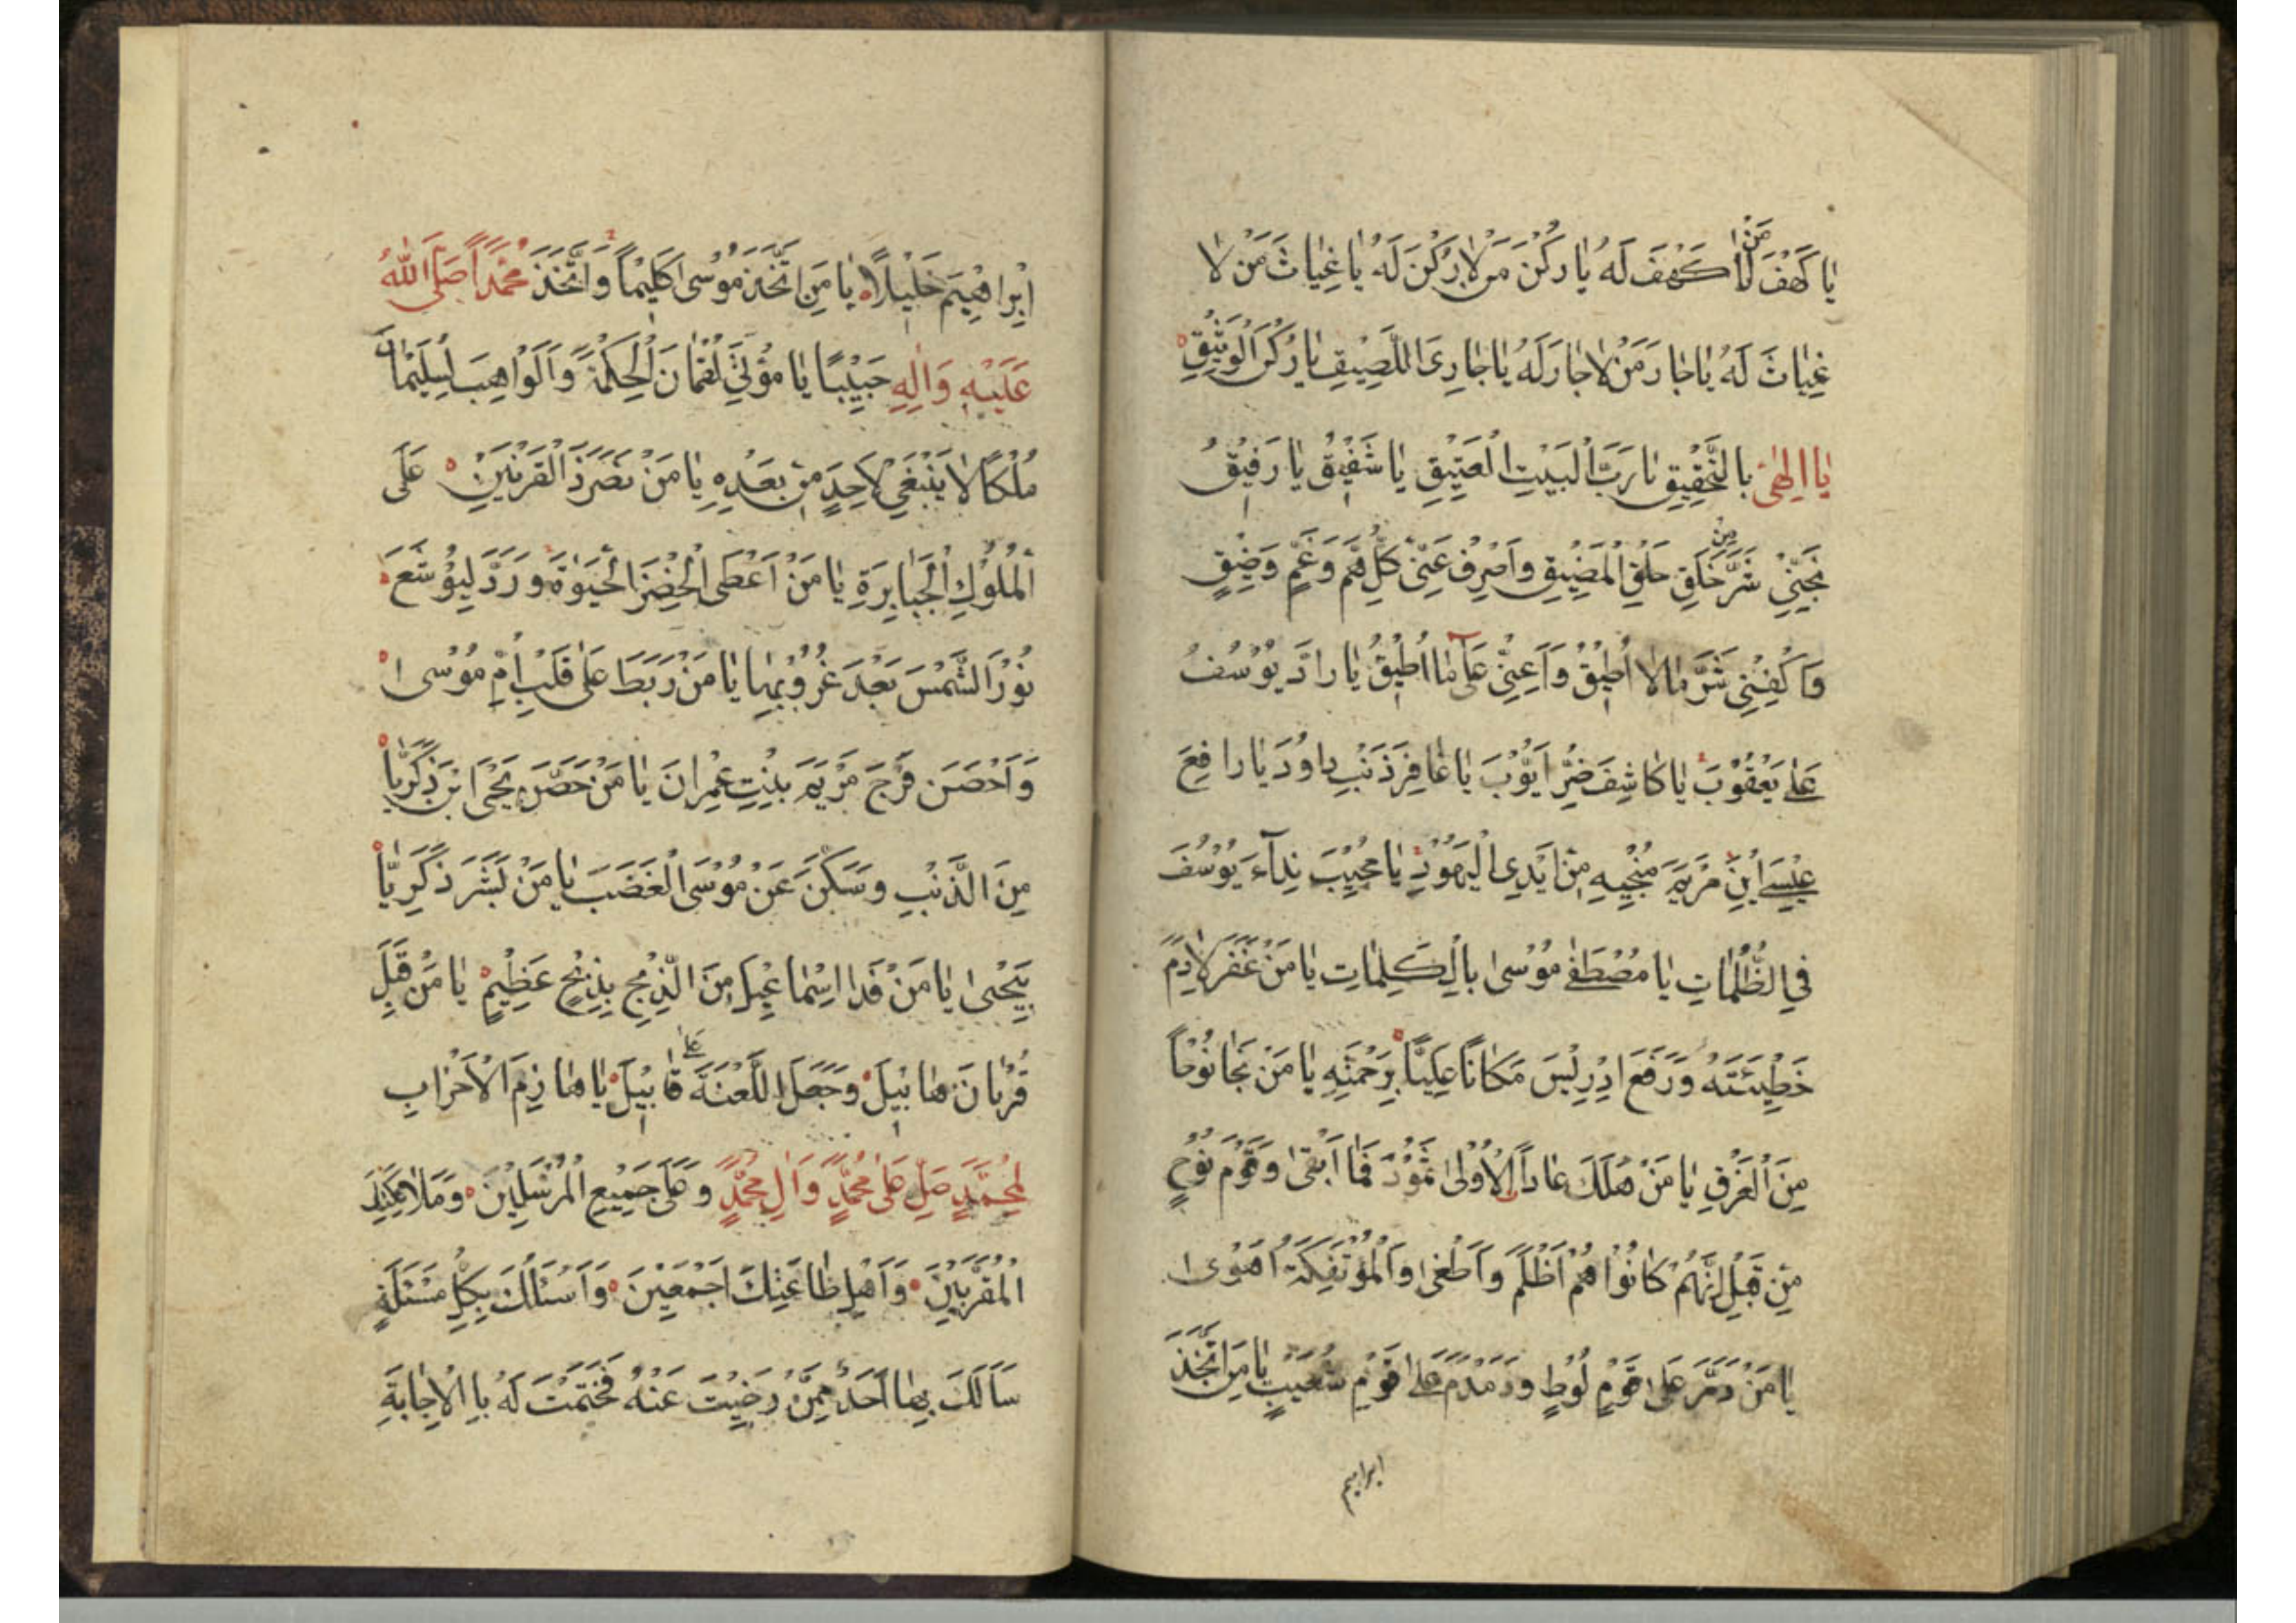 يَا كَهْفَ مَنْ لَا كَهْفَ لَهُ يَا رُكْنَ مَنْ لَا رُكْنَ لَهُ يَا غِيَاثَ مَنْ لَا
غِيَاثَ لَهُ يَا جَارَ مَنْ لَا جَارَ لَهُ يَا جَارِىَ اللَّصِيقِ يَا رُكْنِىَ الْوَثِيقِ
يَا اِلٰهِى بِالتَّحْقِيقِ يَا رَبَّ الْبَيْتِ الْعَتِيقِ يَا شَفِيقُ يَا رَفِيقُ
نَجِّنِى شَرَّ خَلْقِ مِنْ حَلَقِ الْمَضِيقِ وَاصْرِفْ عَنِّى كُلَّ هَمٍّ وَغَمٍّ وَضِيقٍ
وَاكْفِنِى شَرَّ مَا لَا اُطِيقُ وَاَعِنِّى عَلَى مَا اُطِيقُ يَا رَادَّ يُوسُفَ
عَلَى يَعْقُوبَ يَا كَاشِفَ ضُرِّ اَيُّوبَ يَا غَافِرَ ذَنْبِ دَاوُدَ يَا رَافِعَ
عِيسَى ابْنِ مَرْيَمَ مُنْجِيهِ مِنْ اَيْدِى الْيَهُودِ يَا مُجِيبَ نِدَآءَ يُوسُفَ
فِى الظُّلُمَاتِ يَا مُصْطَفٰى مُوسٰى بِالْكَلِمَاتِ يَا مَنْ غَفَرَ لِاٰدَمَ
خَطِيئَتَهُ وَرَفَعَ اِدْرِيسَ مَكَانًا عَلِيًّا بِرَحْمَتِهِ يَا مَنْ نَجَا نُوحًا
مِنَ الْغَرَقِ يَا مَنْ هَلَكَ عَادًا الْاُولٰى ثَمُودَ فَمَا اَبْقٰى وَقَوْمَ نُوحٍ
مِنْ قَبْلُ اِنَّهُمْ كَانُوا هُمْ اَظْلَمَ وَاَطْغٰى وَالْمُؤْتَفِكَةَ اَهْوٰى
يَا مَنْ دَمَّرَ عَلَى قَوْمِ لُوطٍ وَدَمْدَمَ عَلَى قَوْمِ شُعَيْبٍ يَا مَنِ اتَّخَذَ
ابراهيم
اِبْرَاهِيمَ خَلِيلًا يَا مَنِ اتَّخَذَ مُوسٰى كَلِيمًا وَاتَّخَذَ مُحَمَّدًا صَلَّى اللهُ
عَلَيْهِ وَاٰلِهِ حَبِيبًا يَا مُؤْتِىَ لُقْمَانَ الْحِكْمَةَ وَالْوَاهِبَ لِسُلَيْمَانَ
مُلْكًا لَا يَنْبَغِى لِاَحَدٍ مِنْ بَعْدِهِ يَا مَنْ نَصَرَ ذَا الْقَرْنَيْنِ عَلَى
الْمُلُوكِ الْجَبَابِرَةِ يَا مَنْ اَعْطَى الْخِضْرَ الْحَيٰوةَ وَرَدَّ لِيُوشَعَ
نُورَ الشَّمْسِ بَعْدَ غُرُوبِهَا يَا مَنْ رَبَطَ عَلٰى قَلْبِ اُمِّ مُوسٰى
وَاَحْصَنَ فَرْجَ مَرْيَمَ بِنْتِ عِمْرَانَ يَا مَنْ حَصَّنَ يَحْيَى ابْنَ زَكَرِيَّا
مِنَ الذَّنْبِ وَسَكَّنَ عَنْ مُوسَى الْغَضَبَ يَا مَنْ بَشَّرَ ذَكَرِيَّا
بِيَحْيٰى يَا مَنْ فَدَا اِسْمَاعِيلَ مِنَ الذِّبْحِ بِذِبْحٍ عَظِيمٍ يَا مَنْ قَبِلَ
قُرْبَانَ هَابِيلَ وَجَعَلَ اللَّعْنَةَ عَلٰى قَابِيلَ يَا هَازِمَ الْاَحْزَابِ
لِمُحَمَّدٍ صَلِّ عَلٰى مُحَمَّدٍ وَاٰلِ مُحَمَّدٍ وَعَلٰى جَمِيعِ الْمُرْسَلِينَ وَمَلَائِكَتِكَ
الْمُقَرَّبِينَ وَاَهْلِ طَاعَتِكَ اَجْمَعِينَ وَاَسْئَلُكَ بِكُلِّ مَسْئَلَةٍ
سَاَلَكَ بِهَا اَحَدٌ مِمَّنْ رَضِيتَ عَنْهُ فَخَتَمْتَ لَهُ بِا الْاِجَابَةِ